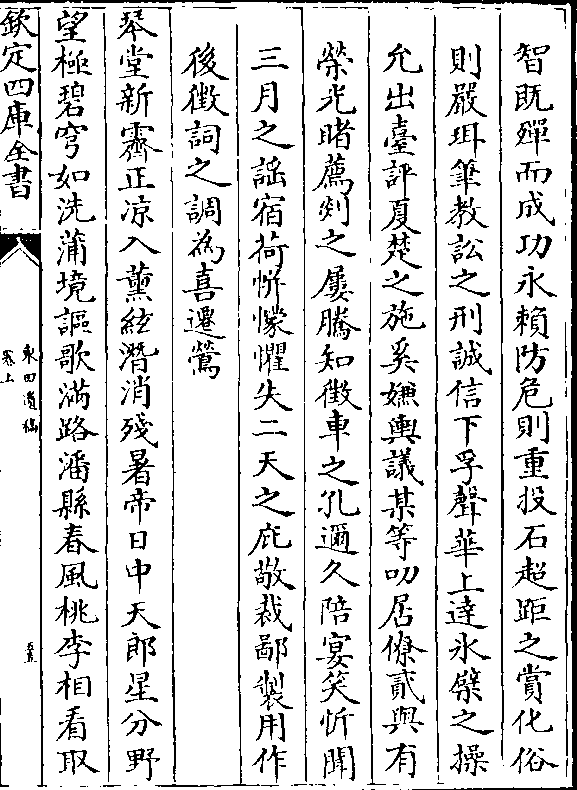 智既殫而成功永賴防危則重投石超距之賞化俗
則嚴珥筆教訟之刑誠信下孚聲華上達氷櫱之操
允出臺評夏楚之施奚嫌輿議某等叨居僚貳與有
榮光睹薦剡之屢騰知徴車之孔邇久陪宴笑忻聞
三月之謡宿荷恱懞懼失二天之庇敬裁鄙製用作
後徴詞之調為喜遷鶯
琴堂新霽正凉入薰絃潛消殘暑帝日中天郎星分野
望極碧穹如洗蒲境謳歌滿路潘縣春風桃李相看取
欽定四庫全書
東田遺稿
卷上